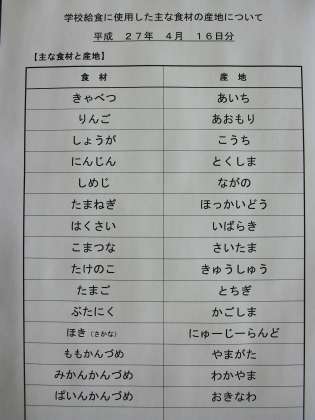 学校給食に使用した主な食材の産地について
平成　２７年　４月　１６日分
【主な食材と産地】
食　材　産　地
きゃべつ　あいち
りんご　あおもり
しょうが　こうち
にんじん　とくしま
しめじ　ながの
たまねぎ　ほっかいどう
はくさい　いばらき
こまつな　さいたま
たけのこ　きゅうしゅう
たまご　とちぎ
ぶたにく　かごしま
ほき（さかな）　にゅーじーらんど
ももかんづめ　やまがた
みかんかんづめ　わかやま
ぱいんかんづめ　おきなわ